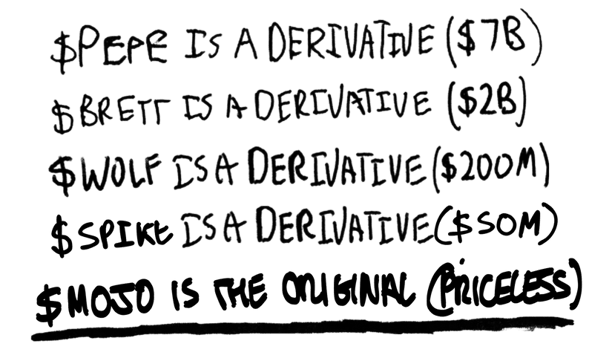 $PEPE IS A DERIVATIVE ($7B)
$BRETT IS A DERIVATIVE ($2B)
$WOLF IS A DERIVATIVE ($200M)
$SPIKE IS A DERIVATIVE ($50M)
$MOJO IS THE ORIGINAL (PRICELESS)